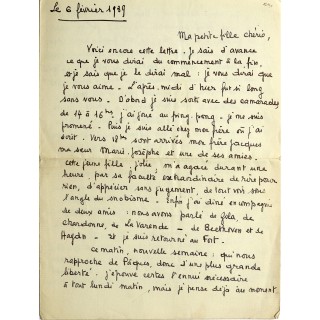 Le 6 février 1939
Ma petite fille chérie,
Voici encore cette lettre. Je sais d'avance
ce que je vous dirai du commencement à la fin.
et je sais que je le dirai mal : je vous dirai que
je vous aime. L'après-midi d'hier fut si long
sans vous. D'abord je suis sorti avec des camarades
de 14 à 16 j'ai joué au ping-pong. je me suis
promené. Puis je suis allé chez mon frère où j'ai
écrit. Vers 18 sont arrivés mon frère Jacques
ma sœur Marie Josèphe et une de ses amies.
cette jeune fille, jolie m'a agacé durant une
heure, par sa faculté extraordinaire de rire pour
rien, d'apprécier sans jugement, de tout voir sous
l'angle du snobisme. Enfin j'ai dîné en compagnie
de deux amis : nous avons parlé de
Chardonne, de La Varende - de Beethoven et de
Haydn - et je suis retourné au Fort.
Ce matin, nouvelle semaine ; qui nous
rapproche de Pâques, donc d'une plus grande
liberté. j'éprouve certes l'ennui nécessaire
à tout lundi matin, mais je pense déjà au moment